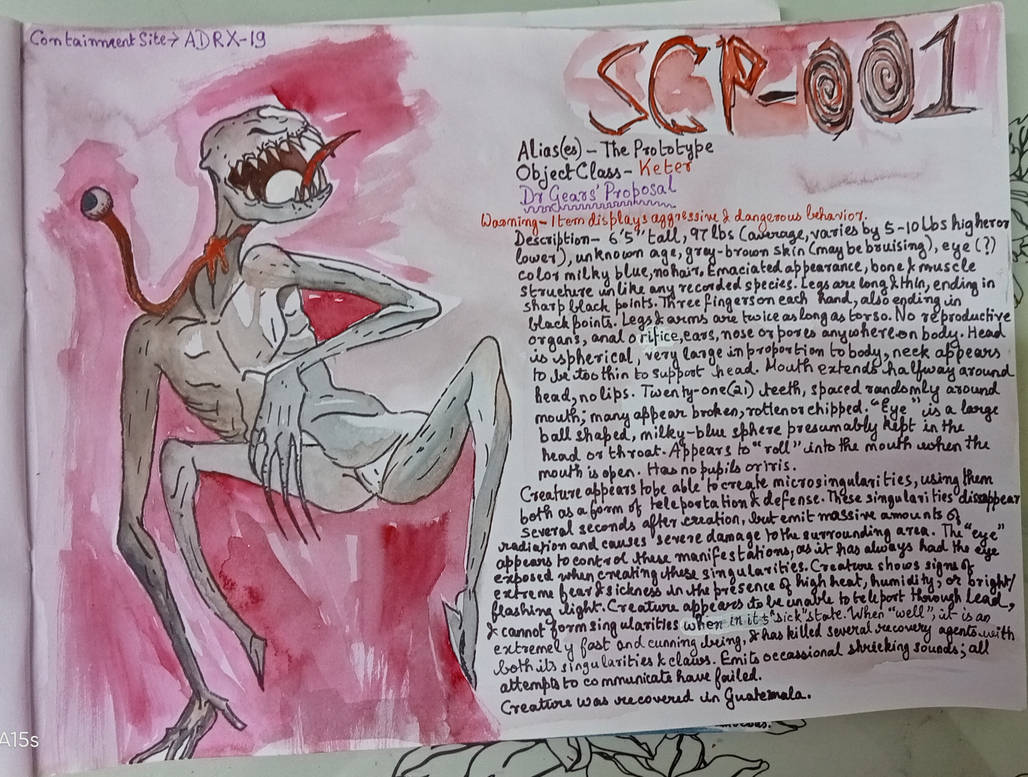 Containment Site → ADRX-19
SCP-001
Alias(es) - The Prototype
Object Class - Keter
Dr Gears' Proposal
Warning - Item displays aggressive & dangerous behavior.
Description - 6'5" tall, 97 lbs (average, varies by 5-10 Lbs higher or
lower), unknown age, grey-brown skin (may be bruising), eye (?)
color milky blue, no hair. Emaciated appearance, bone & muscle
structure unlike any recorded species. Legs are long & thin, ending in
sharp black points. Three fingers on each hand, also ending in
black points. Legs & arms are twice as long as torso. No reproductive
organs, anal orifice, ears, nose or pores anywhere on body. Head
is spherical, very large in proportion to body, neck appears
to be too thin to support head. Mouth extends halfway around
head, no lips. Twenty-one (21) teeth, spaced randomly around
mouth; many appear broken, rotten or chipped. "Eye" is a large
ball shaped, milky-blue sphere presumably kept in the
head or throat. Appears to "roll" into the mouth when the
mouth is open. Has no pupils or iris.
Creature appears to be able to create microsingularities, using them
both as a form of teleportation & defense. These singularities disappear
several seconds after creation, but emit massive amounts of
radiation and causes severe damage to the surrounding area. The "eye"
appears to control these manifestations, as it has always had the eye
exposed when creating these singularities. Creature shows signs of
extreme fear & sickness in the presence of high heat, humidity, or bright/
flashing light. Creature appears to be unable to teleport through Lead,
& cannot form singularities when in it's "sick" state. When "well", it is an
extremely fast and cunning being, & has killed several recovery agents with
both its singularities & claws. Emits occassional shrieking sounds; all
attempts to communicate have failed.
Creature was recovered in Guatemala.
A15s